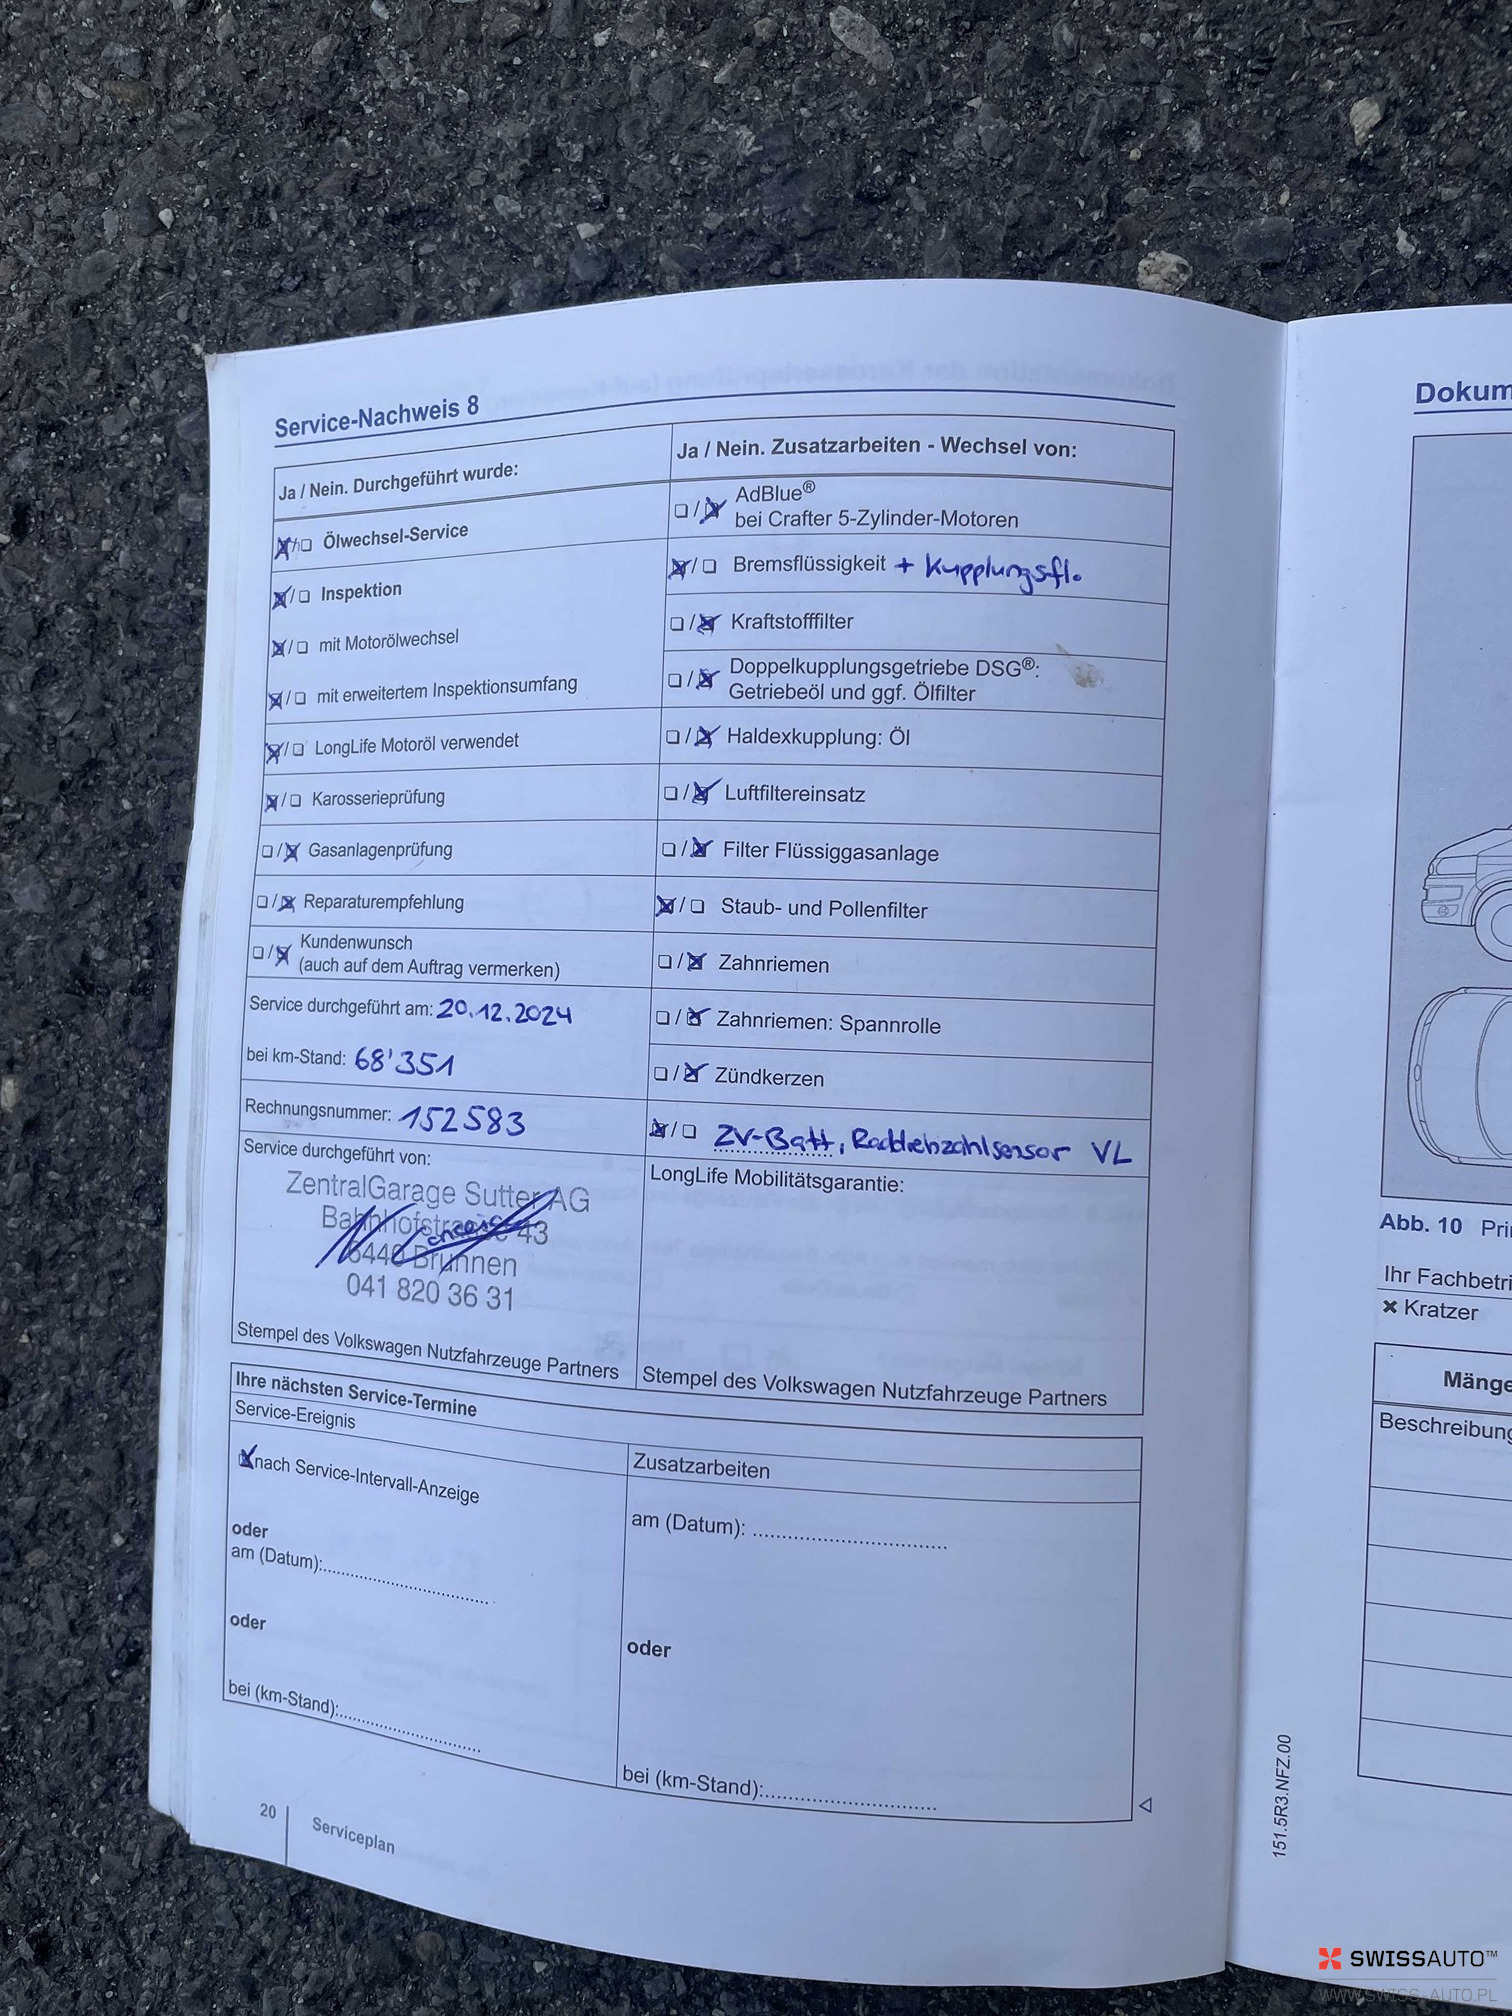 Service-Nachweis 8
Ja / Nein. Durchgeführt wurde:
Ölwechsel-Service
Inspektion
mit Motorölwechsel
mit erweitertem Inspektionsumfang
LongLife Motoröl verwendet
Karosserieprüfung
Gasanlagenprüfung
Reparaturempfehlung
Kundenwunsch
(auch auf dem Auftrag vermerken)
Service durchgeführt am: 20.12.2024
bei km-Stand: 68'351
Rechnungsnummer: 152583
Service durchgeführt von:
ZentralGarage Sutter AG
Bahnhofstrasse 43
6440 Brunnen
041 820 36 31
Stempel des Volkswagen Nutzfahrzeuge Partners
Ja / Nein. Zusatzarbeiten - Wechsel von:
AdBlue®
bei Crafter 5-Zylinder-Motoren
Bremsflüssigkeit + Kupplungsfl.
Kraftstofffilter
Doppelkupplungsgetriebe DSG®:
Getriebeöl und ggf. Ölfilter
Haldexkupplung: Öl
Luftfiltereinsatz
Filter Flüssiggasanlage
Staub- und Pollenfilter
Zahnriemen
Zahnriemen: Spannrolle
Zündkerzen
ZV-Batt, Raddrehzahlsensor VL
LongLife Mobilitätsgarantie:
Stempel des Volkswagen Nutzfahrzeuge Partners
Ihre nächsten Service-Termine
Service-Ereignis
nach Service-Intervall-Anzeige
oder
am (Datum):
oder
bei (km-Stand):
Zusatzarbeiten
am (Datum):
oder
bei (km-Stand):
20
Serviceplan
Dokum
Abb. 10 Pri
Ihr Fachbetri
✖ Kratzer
Mänge
Beschreibung
151.5R3.NFZ.00
SWISSAUTO™
WWW.SWISS-AUTO.PL